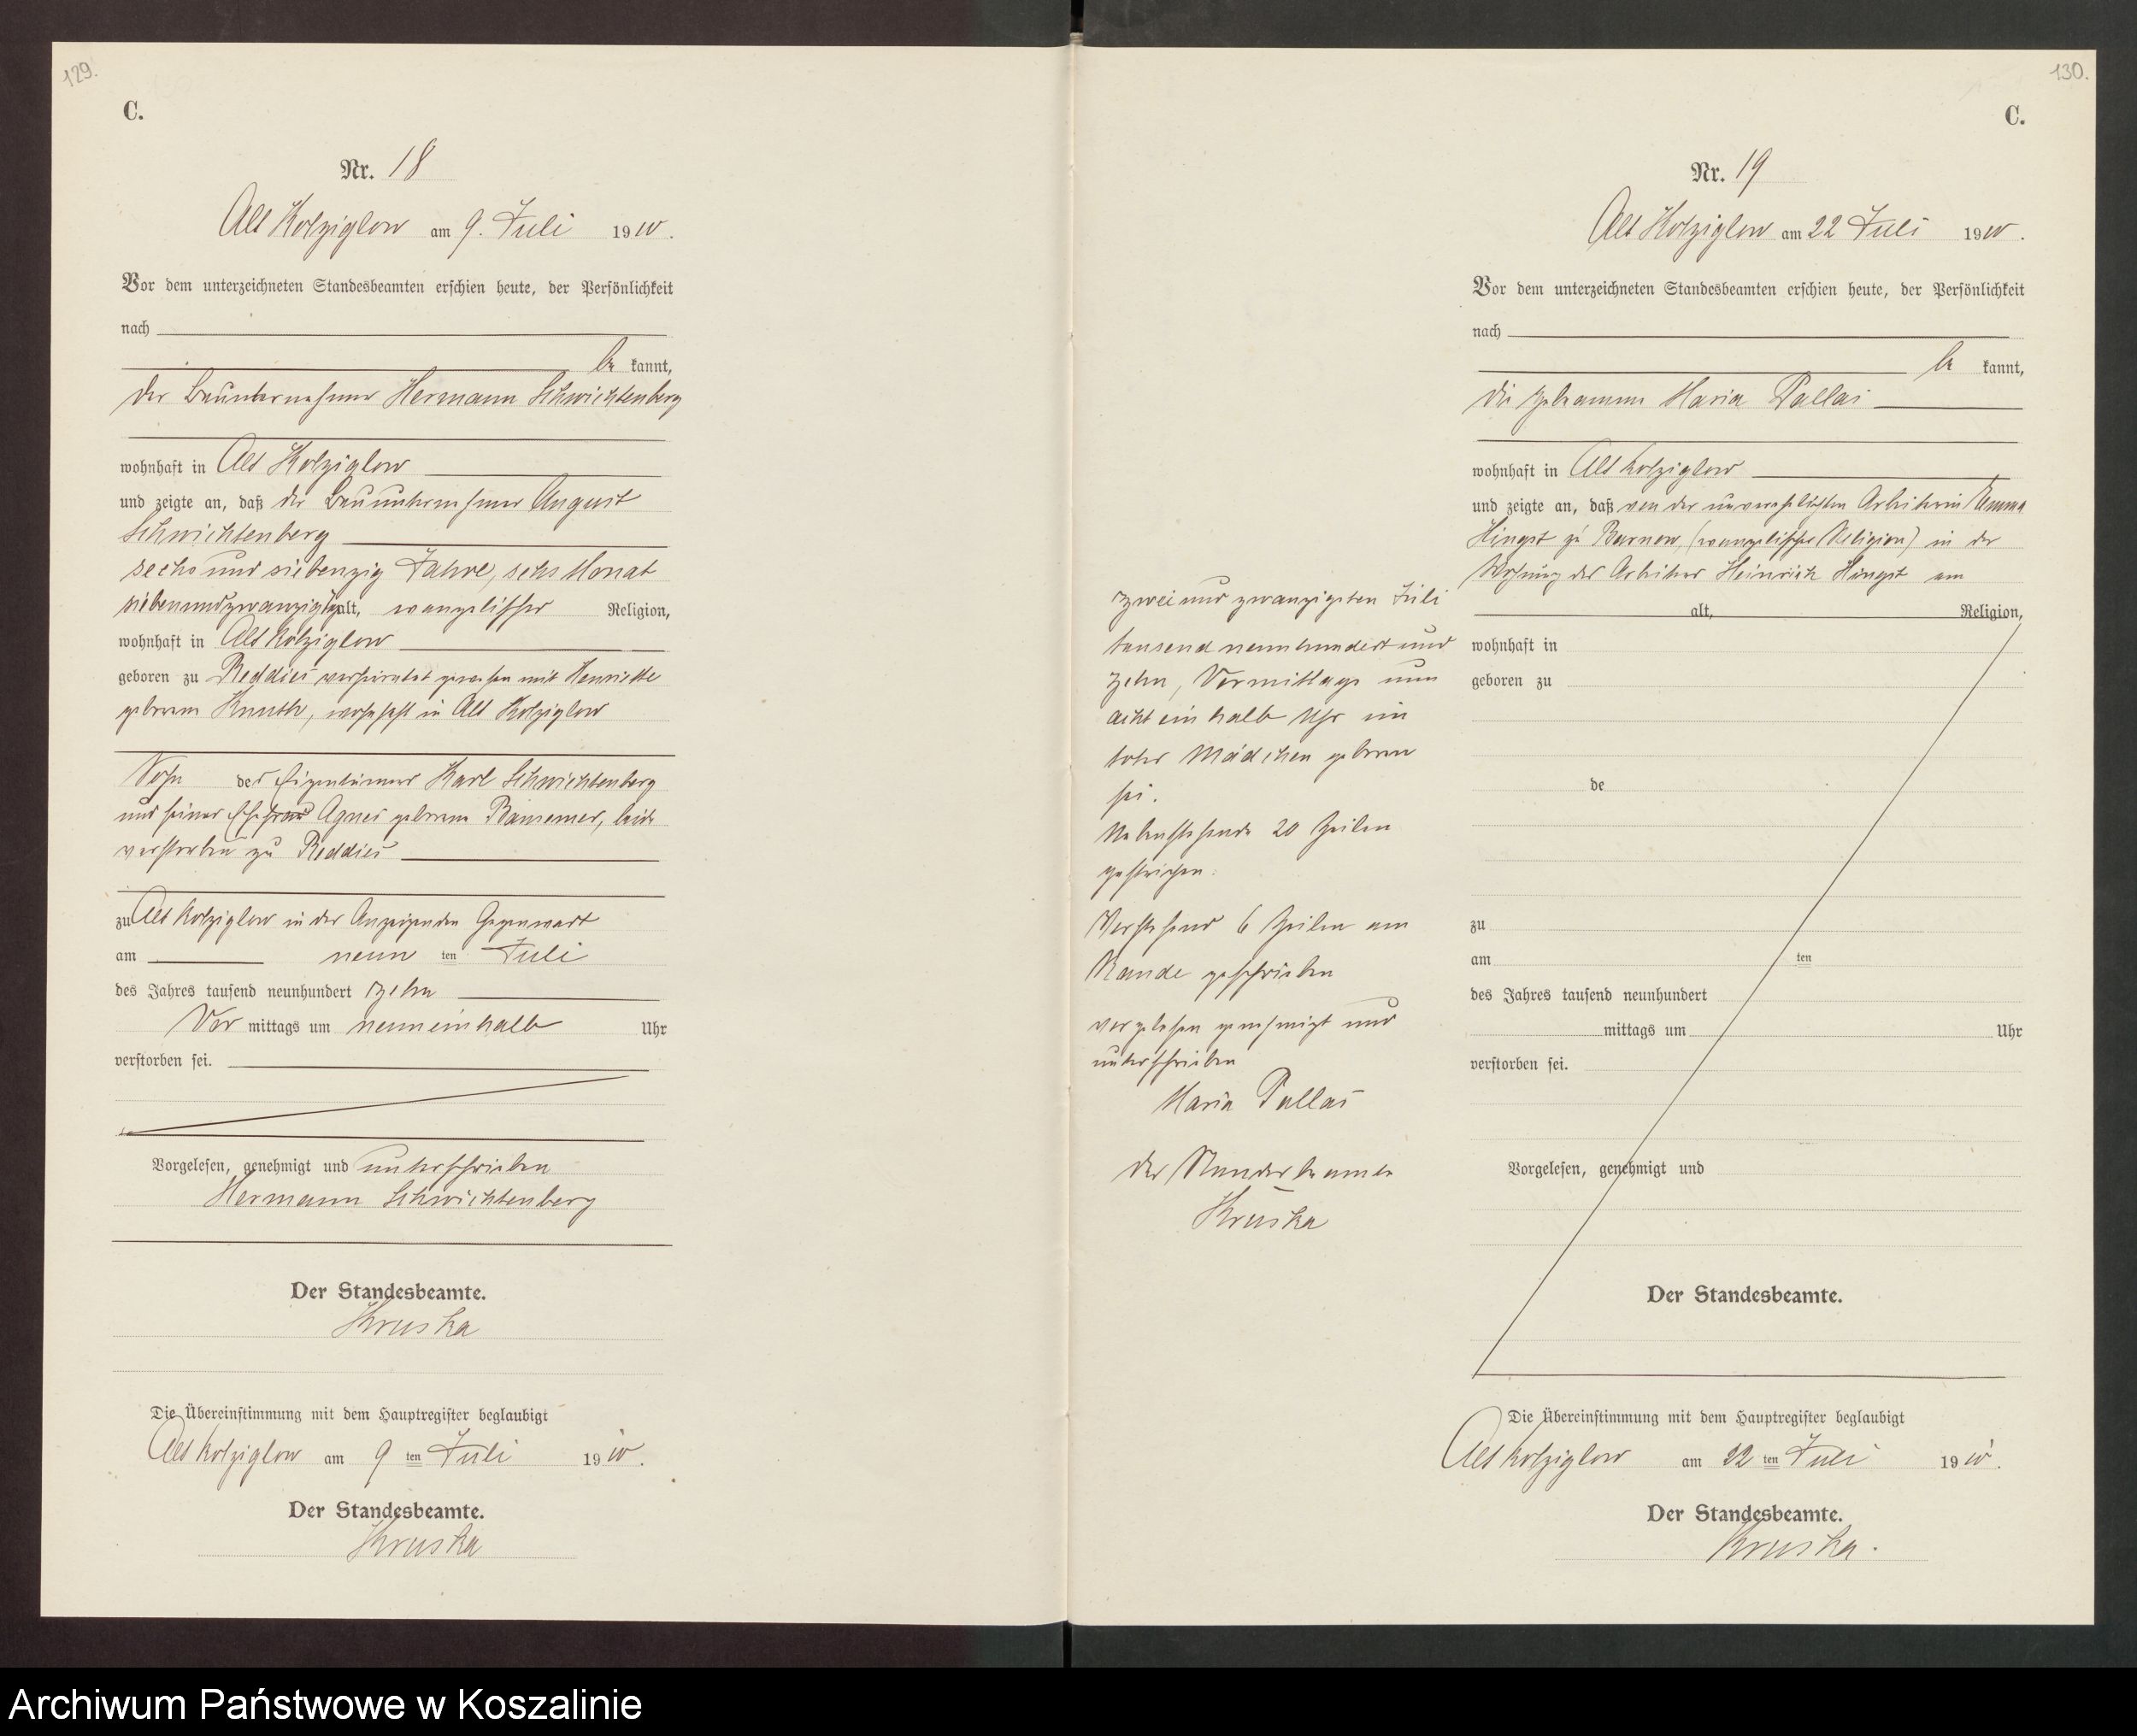 129.
C.
Nr. 18
Alt Kolziglow am 9. Juli 1910.
Vor dem unterzeichneten Standesbeamten erschien heute, der Persönlichkeit
nach
be kannt,
der Bauunternehmer Hermann Schwichtenberg
wohnhaft in Alt Kolziglow
und zeigte an, daß der Bauunternehmer August
Schwichtenberg
sechs und siebenzig Jahre, sechs Monat
siebenundzwanzig Tg alt, evangelischer Religion,
wohnhaft in Alt Kolziglow
geboren zu Reddies verheiratet gewesen mit Henriette
geborene Knuth, wohnhaft in Alt Kolziglow
Sohn des Eigentümers Karl Schwichtenberg
und seiner Ehefrau Agnes geborene Bansemer, beide
verstorben zu Reddies
zu Alt Kolziglow in des Anzeigenden Gegenwart
am neun ten Juli
des Jahres tausend neunhundert zehn
Vor mittags um neuneinhalb Uhr
verstorben sei.
Vorgelesen, genehmigt und unterschrieben
Hermann Schwichtenberg
Der Standesbeamte.
Kruska
Die Übereinstimmung mit dem Hauptregister beglaubigt
Alt Kolziglow am 9 ten Juli 1910.
Der Standesbeamte.
Kruska
130.
C.
Nr. 19
Alt Kolziglow am 22 Juli 1910.
Vor dem unterzeichneten Standesbeamten erschien heute, der Persönlichkeit
nach
be kannt,
die Hebamme Maria Pallas
wohnhaft in Alt Kolziglow
und zeigte an, daß von der unverehelichten Arbeiterin Emma
Hingst zu Barnow, (evangelischer Religion) in der
Wohnung des Arbeiters Heinrich Hingst am
alt, Religion,
zwei und zwanzigsten Juli
tausend neunhundert und
zehn, Vormittags um
acht ein halb Uhr ein
totes Mädchen geboren
sei.
Nebenstehende 20 Zeilen
gestrichen.
Vorstehend 6 Zeilen am
Rande geschrieben
vorgelesen genehmigt und
unterschrieben
Maria Pallas
Der Standesbeamte
Kruska
wohnhaft in
geboren zu
de
zu
am ten
des Jahres tausend neunhundert
mittags um Uhr
verstorben sei.
Vorgelesen, genehmigt und
Der Standesbeamte.
Die Übereinstimmung mit dem Hauptregister beglaubigt
Alt Kolziglow am 22 ten Juli 1910.
Der Standesbeamte.
Kruska.
Archiwum Państwowe w Koszalinie